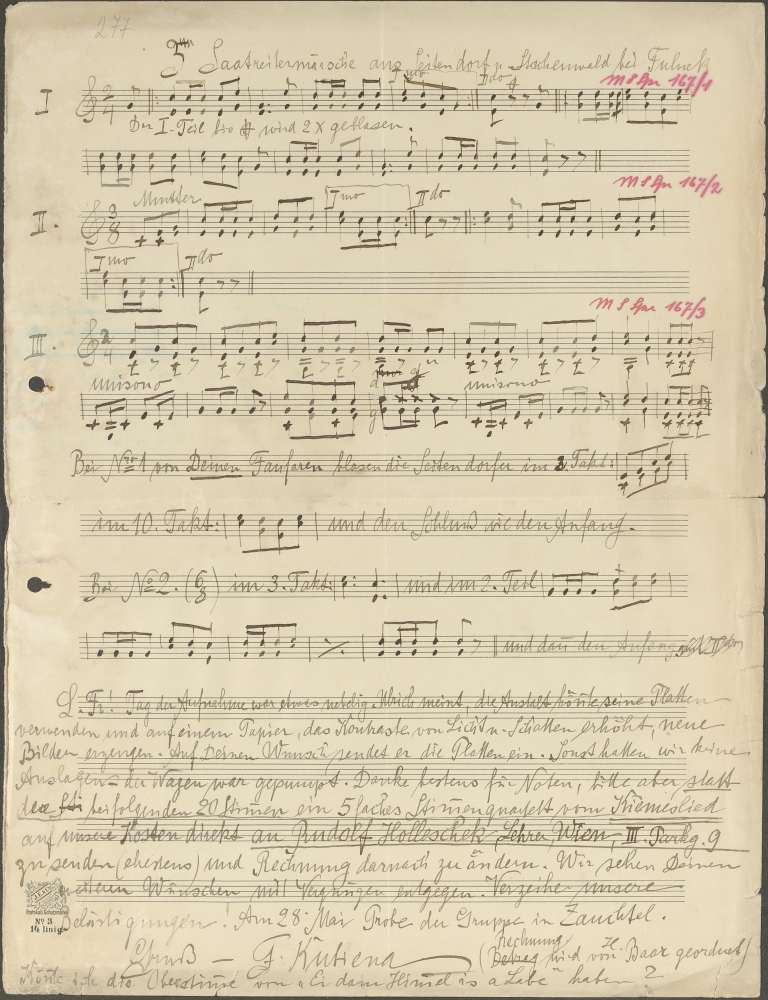 277
Saatreitermärsche aus Seitendorf u. Stachenwald bei Fulnek
M S Spr 167/1
I
2/4
I mo
II do
Der I-Teil bis wird 2 x geblasen.
M S Spr 167/2
II.
3/8
I mo
II do
I mo
II do
M S Spr 167/3
III.
2/4
unisono
unisono
Bei No 1 von Deinen Fanfaren blasen die Seitendorfer im Takt:
im 10. Takt: und den Schluß wie den Anfang.
Bei No 2. (6/8) im 3. Takt: und im 2. Teil
und dann den Anfang
L. Fr! Tag der Aufnahme war etwas neblig. Ulrich meint, die Anstalt könnte seine Platten
verwenden und auf einem Papier, das Kontraste von Licht u. Schatten erhöht, neue
Bilder erzeugen. Auf Deinen Wunsch sendet er die Platten ein. Sonst hatten wir keine
Auslagen – der Wagen war gepumpt. Danke bestens für Noten, bitte aber statt
der beifolgenden 20 Stimmen ein 5 faches Stimmenquartett vom
auf unsere Kosten direkt an Rudolf Holleschek, Lehrer, Wien, III. Parkg. 9
zu senden (ehestens) und Rechnung darnach zu ändern. Wir sehen Deinen
weiteren Wünschen mit Vergnügen entgegen. Verzeihe unsere
Belästigungen! Am 28. Mai Probe der Gruppe in Zauchtel.
Gruß – F. Kubiena (Rechnung wird von H. Baar geordnet)
Könnte ich die Oberstimme von „Ei dam Himel is a Labe" haben?
No 3
14 linig